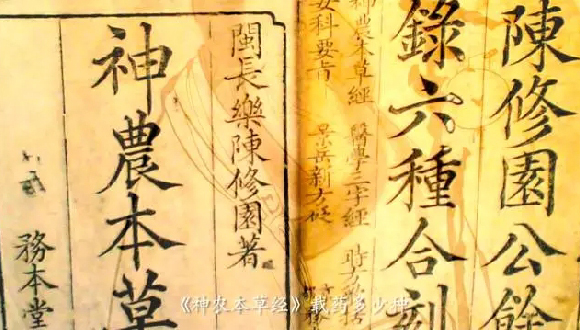 陳修園公餘
錄六種合刻
神農本草經 醫學三字經 時方
女科要旨 景岳新方砭
閩長樂陳修園著
神農本草
務本堂
《神农本草经》载药多少种